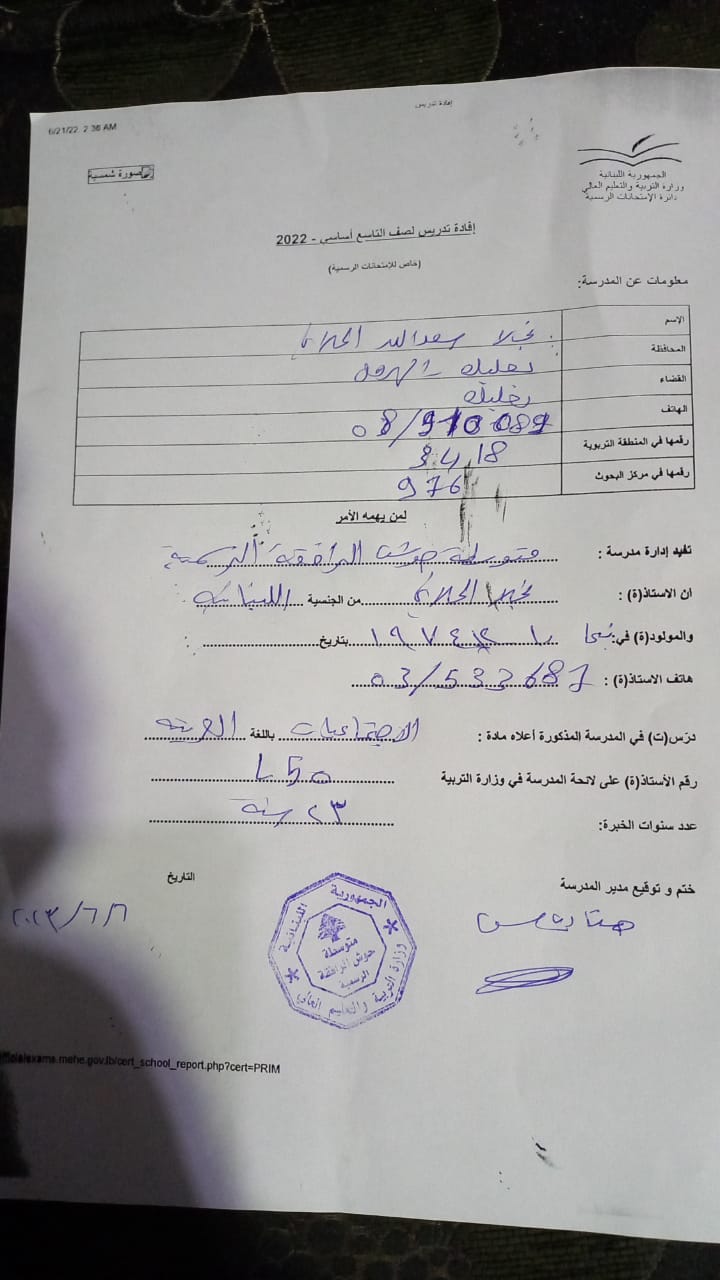 6/21/22, 2:36 AM
إفادة تدريس
صورة شمسية
الجمهورية اللبنانية
وزارة التربية والتعليم العالي
دائرة الإمتحانات الرسمية
إفادة تدريس لصف التاسع أساسي - 2022
(خاص للإمتحانات الرسمية)
معلومات عن المدرسة:
الإسم
المحافظة بعلبك الهرمل
القضاء بعلبك
الهاتف 08/910089
رقمها في المنطقة التربوية 3418
رقمها في مركز البحوث 976
لمن يهمه الأمر
تفيد إدارة مدرسة : متوسطة حوش الرافقة الرسمية
ان الاستاذ(ة) : من الجنسية اللبنانية
والمولود(ة) في: بتاريخ
هاتف الاستاذ(ة) : 03/533687
درّس(ت) في المدرسة المذكورة أعلاه مادة : الاجتماعيات باللغة العربية
رقم الأستاذ(ة) على لائحة المدرسة في وزارة التربية
عدد سنوات الخبرة: ٢٣ سنة
ختم و توقيع مدير المدرسة
التاريخ
الجمهورية اللبنانية
وزارة التربية والتعليم العالي
متوسطة
حوش الرافقة
الرسمية
officialexams.mehe.gov.lb/cert_school_report.php?cert=PRIM